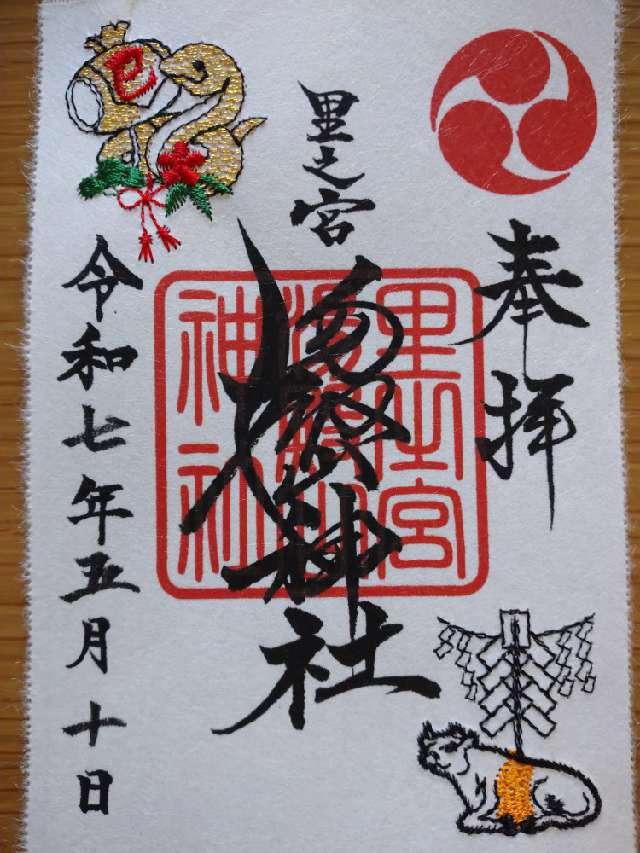 奉拝
里之宮
湯殿山神社
令和七年五月十日
里之宮
湯殿山
神社
巳